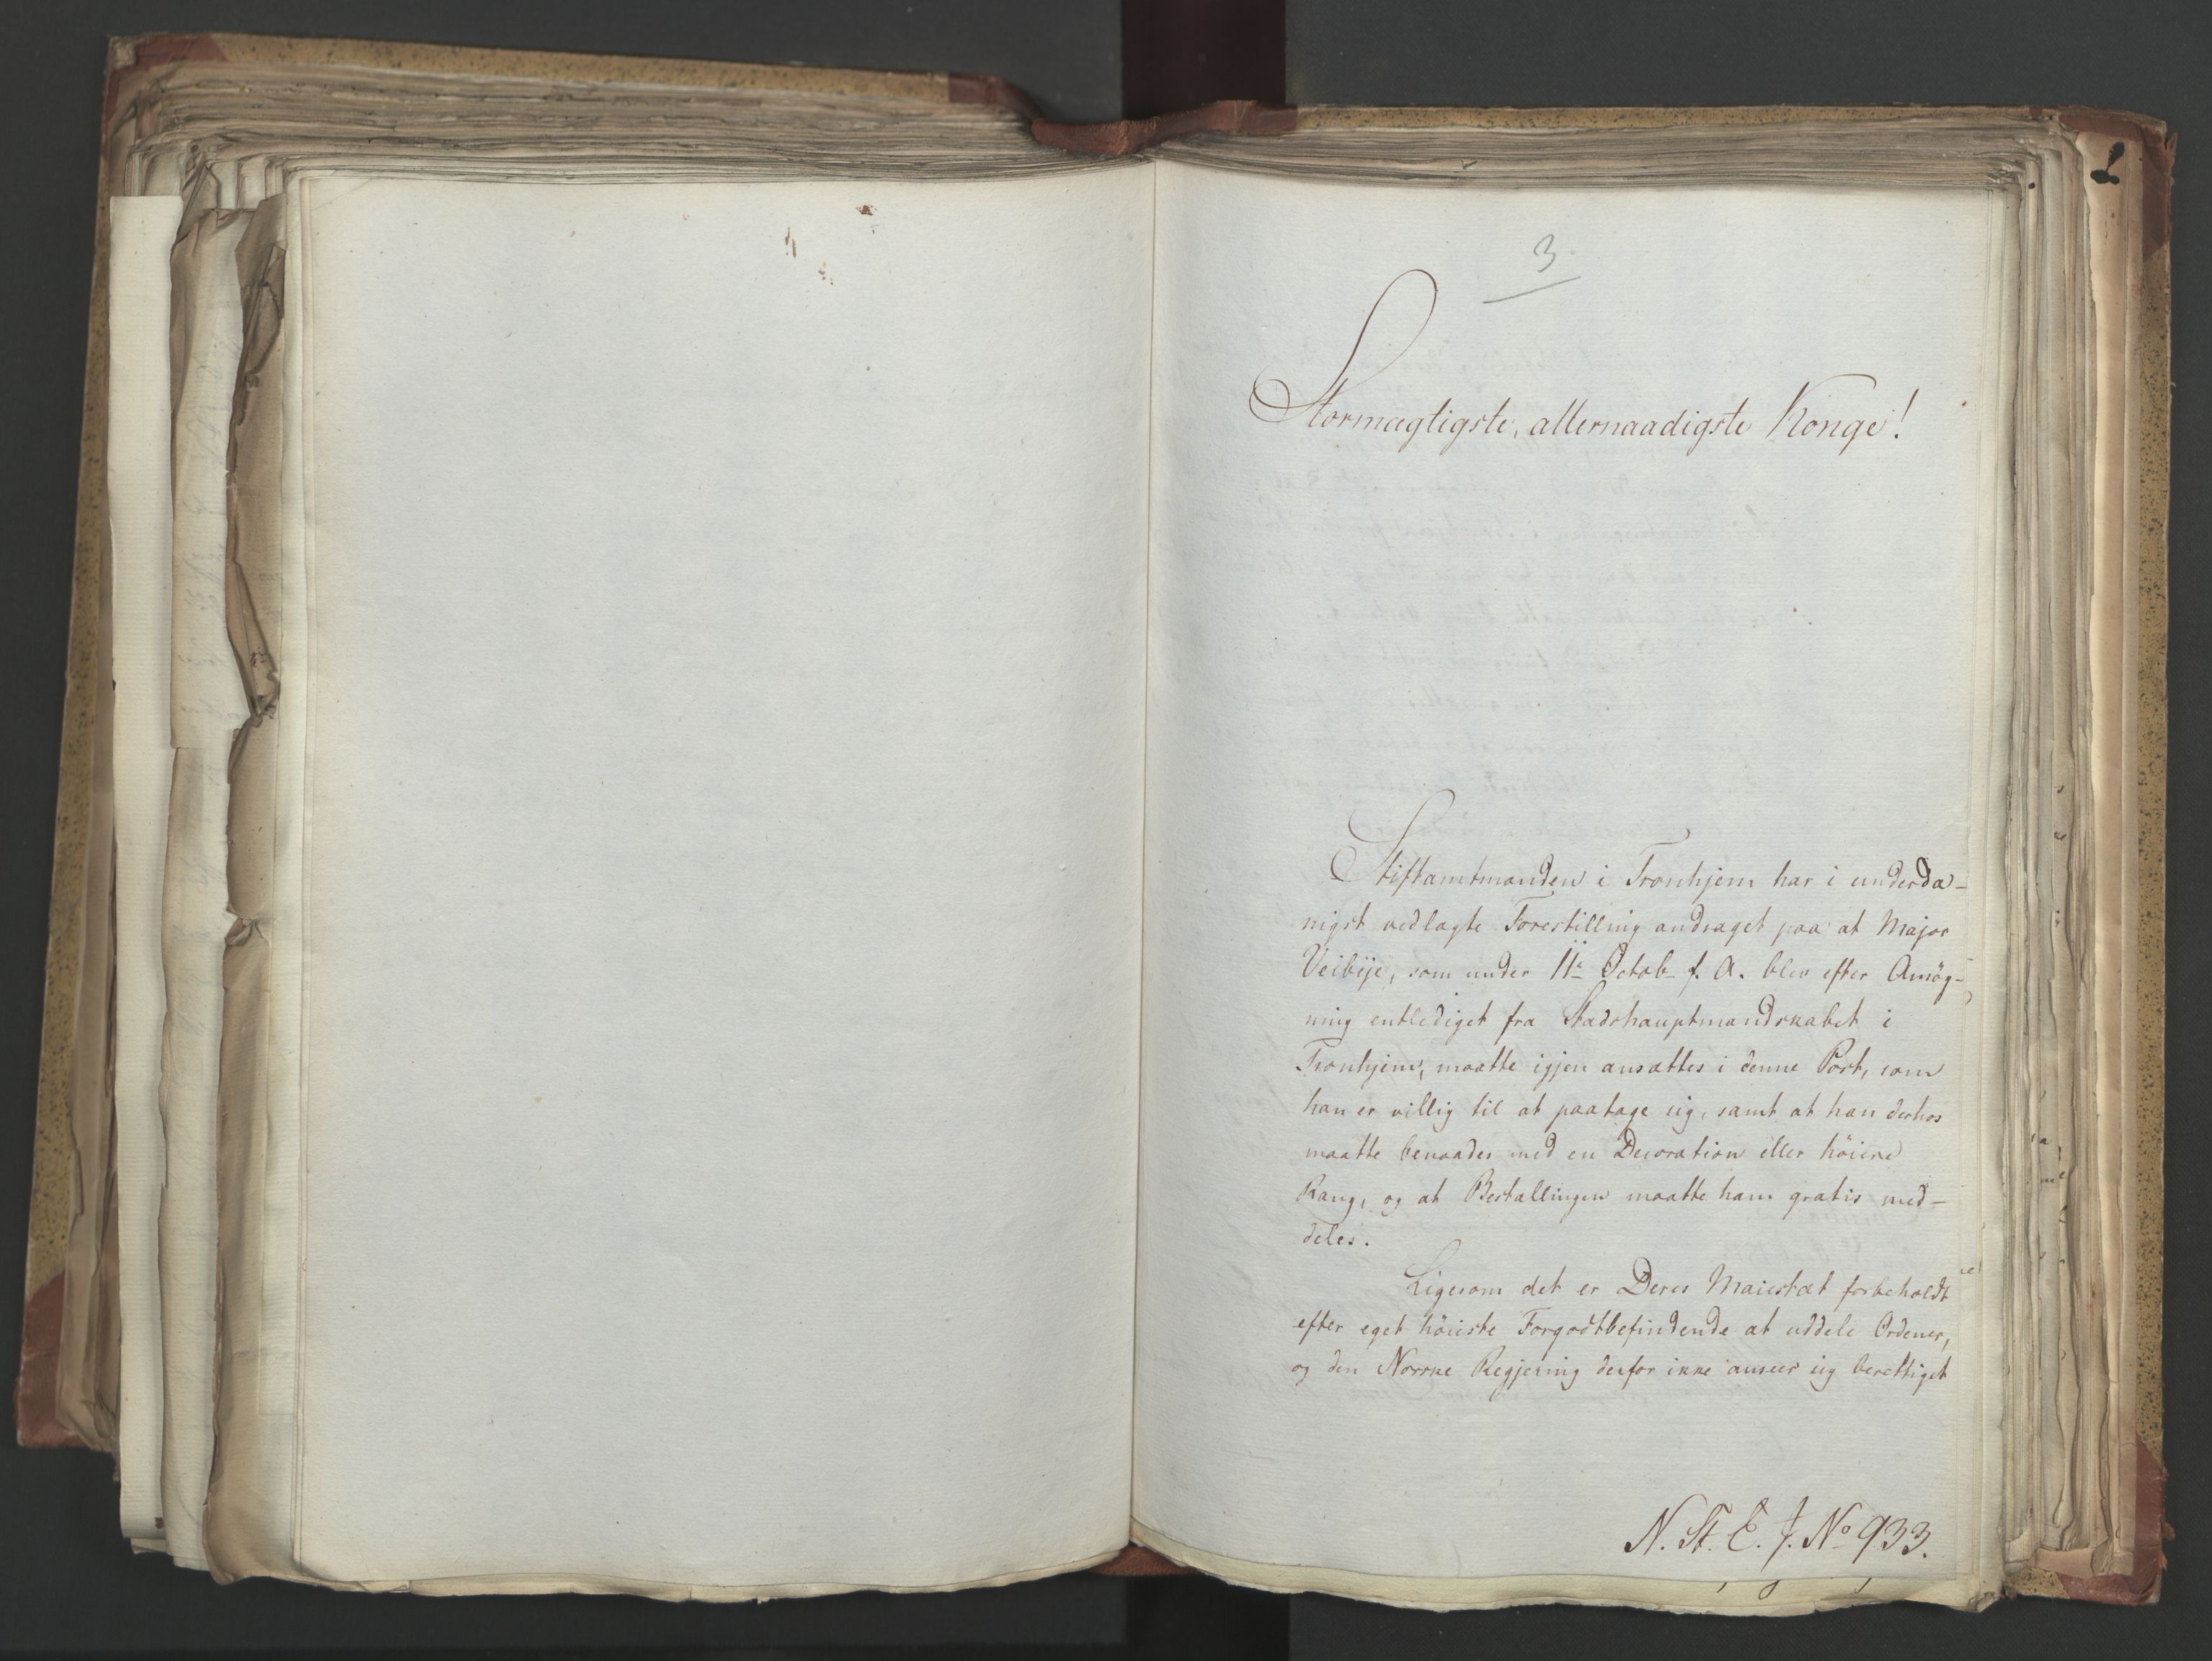 3
Stormægtigste, allernaadigste Konge!
Stiftamtmanden i Tronhjem har i underda-
nigst vedlagte Forestilling andraget paa at Major
Veibÿe, som under 11te Octob f. A. blev efter Ansög-
ning entlediget fra Stadshauptmandskabet i
Tronhjem, maatte igjen ansættes i denne Post, som
han er villig til at paatage sig, samt at han derhos
maatte benaades med en Decoration eller höiere
Rang, og at Bestallingen maatte ham gratis med-
deles.
Ligesom det er Deres Maiestæt forbeholdt
efter eget höieste Forgodtbefindende at uddele Ordener,
og den Norske Regjering derfor ikke anseer sig berettiget
N. St. E. J. No 933.